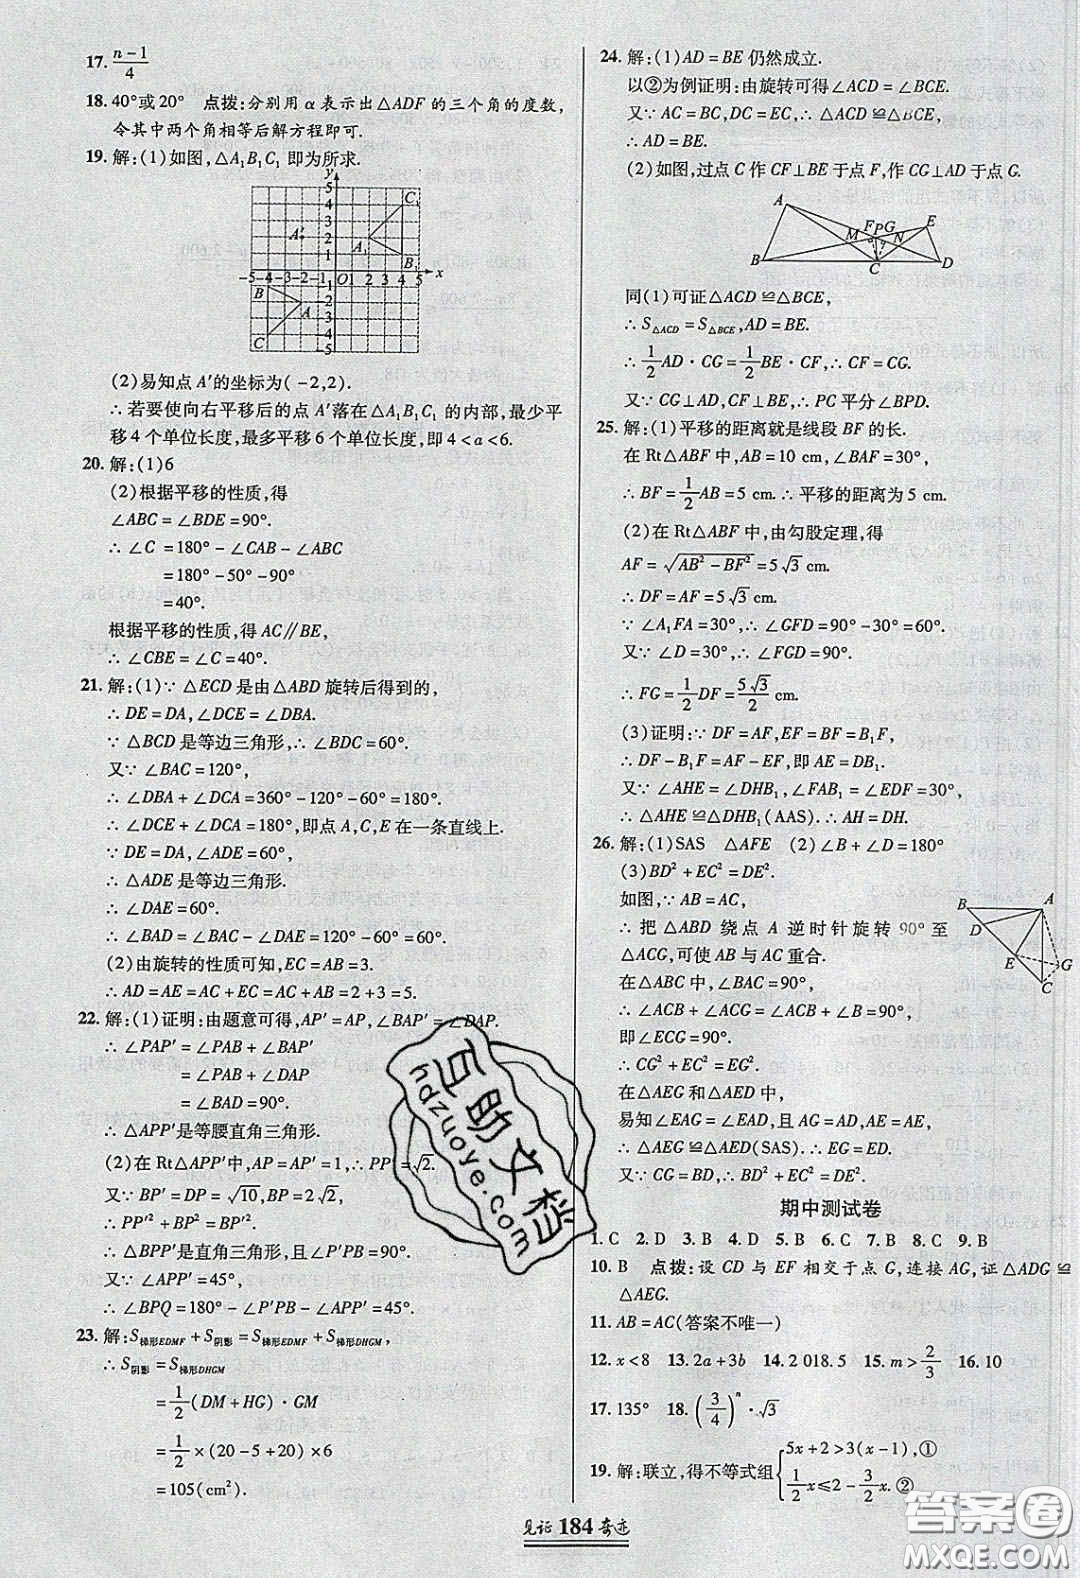 17. (n-1)/4
18. 40°或20°　点拨:分别用 α 表示出△ADF 的三个角的度数,
令其中两个角相等后解方程即可.
19. 解:(1)如图,△A₁B₁C₁ 即为所求.
(2)易知点 A′的坐标为(-2,2).
∴ 若要使向右平移后的点 A′落在△A₁B₁C₁ 的内部,最少平
移 4 个单位长度,最多平移 6 个单位长度,即 4<a<6.
20. 解:(1)6
(2)根据平移的性质,得
∠ABC=∠BDE=90°.
∴ ∠C=180°-∠CAB-∠ABC
=180°-50°-90°
=40°.
根据平移的性质,得 AC∥BE,
∴ ∠CBE=∠C=40°.
21. 解:(1)∵ △ECD 是由△ABD 旋转后得到的,
∴ DE=DA,∠DCE=∠DBA.
∵ △BCD 是等边三角形,∴ ∠BDC=60°.
又∵ ∠BAC=120°,
∴ ∠DBA+∠DCA=360°-120°-60°=180°.
∴ ∠DCE+∠DCA=180°,即点 A,C,E 在一条直线上.
∵ DE=DA,∠ADE=60°,
∴ △ADE 是等边三角形.
∴ ∠DAE=60°.
∴ ∠BAD=∠BAC-∠DAE=120°-60°=60°.
(2)由旋转的性质可知,EC=AB=3.
∴ AD=AE=AC+EC=AC+AB=2+3=5.
22. 解:(1)证明:由题意可得,AP′=AP,∠BAP′=∠DAP.
∴ ∠PAP′=∠PAB+∠BAP′
=∠PAB+∠DAP
=∠BAD=90°.
∴ △APP′是等腰直角三角形.
(2)在 Rt△APP′中,AP=AP′=1,∴ PP′=√2.
又∵ BP′=DP=√10,BP=2√2,
∴ PP′²+BP²=BP′².
∴ △BPP′是直角三角形,且∠P′PB=90°.
又∵ ∠APP′=45°,
∴ ∠BPQ=180°-∠P′PB-∠APP′=45°.
23. 解:S梯形EDMF+S阴影=S梯形EDMF+S梯形DHGM,
∴ S阴影=S梯形DHGM
=1/2(DM+HG)·GM
=1/2×(20-5+20)×6
=105(cm²).
24. 解:(1)AD=BE 仍然成立.
以②为例证明:由旋转可得∠ACD=∠BCE.
又∵ AC=BC,DC=EC,∴ △ACD≌△BCE,
∴ AD=BE.
(2)如图,过点 C 作 CF⊥BE 于点 F,作 CG⊥AD 于点 G.
同(1)可证△ACD≌△BCE,
∴ S△ACD=S△BCE,AD=BE.
∴ 1/2AD·CG=1/2BE·CF,∴ CF=CG.
又∵ CG⊥AD,CF⊥BE,∴ PC 平分∠BPD.
25. 解:(1)平移的距离就是线段 BF 的长.
在 Rt△ABF 中,AB=10 cm,∠BAF=30°,
∴ BF=1/2AB=5 cm.∴ 平移的距离为 5 cm.
(2)在 Rt△ABF 中,由勾股定理,得
AF=√(AB²-BF²)=5√3 cm.
∴ DF=AF=5√3 cm.
∵ ∠A₁FA=30°,∴ ∠GFD=90°-30°=60°.
又∵ ∠D=30°,∴ ∠FGD=90°.
∴ FG=1/2DF=5√3/2 cm.
(3)证明:∵ DF=AF,EF=BF=B₁F,
∴ DF-B₁F=AF-EF,即 AE=DB₁.
∵ ∠AHE=∠DHB₁,∠FAB₁=∠EDF=30°,
∴ △AHE≌△DHB₁(AAS).∴ AH=DH.
26. 解:(1)SAS　△AFE　(2)∠B+∠D=180°
(3)BD²+EC²=DE².
如图,∵ AB=AC,
∴ 把△ABD 绕点 A 逆时针旋转 90°至
△ACG,可使 AB 与 AC 重合.
∵ 在△ABC 中,∠BAC=90°,
∴ ∠ACB+∠ACG=∠ACB+∠B=90°,
即∠ECG=90°.
∴ CG²+EC²=EG².
在△AEG 和△AED 中,
易知∠EAG=∠EAD,且 AD=AG,AE=AE,
∴ △AEG≌△AED(SAS).∴ EG=ED.
又∵ CG=BD,∴ BD²+EC²=DE².
期中测试卷
1. C　2. D　3. B　4. D　5. B　6. C　7. B　8. C　9. B
10. B　点拨:设 CD 与 EF 相交于点 G,连接 AG,证△ADG≌
△AEG.
11. AB=AC(答案不唯一)
12. x<8　13. 2a+3b　14. 2 018.5　15. m>2/3　16. 10
17. 135°　18. (3/4)ⁿ·√3
19. 解:联立,得不等式组{5x+2>3(x-1),①
1/2x≤2-3/2x.②
见证 184 奇迹
百助文档
hdzuoye.com
答案圈
MXQE.COM